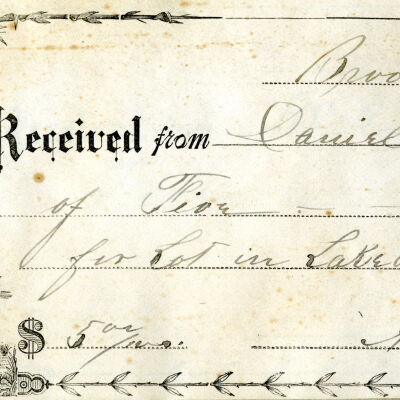 Broo
Received from Daniel
of Five
for Lot in Lake
$ 5 00/100.